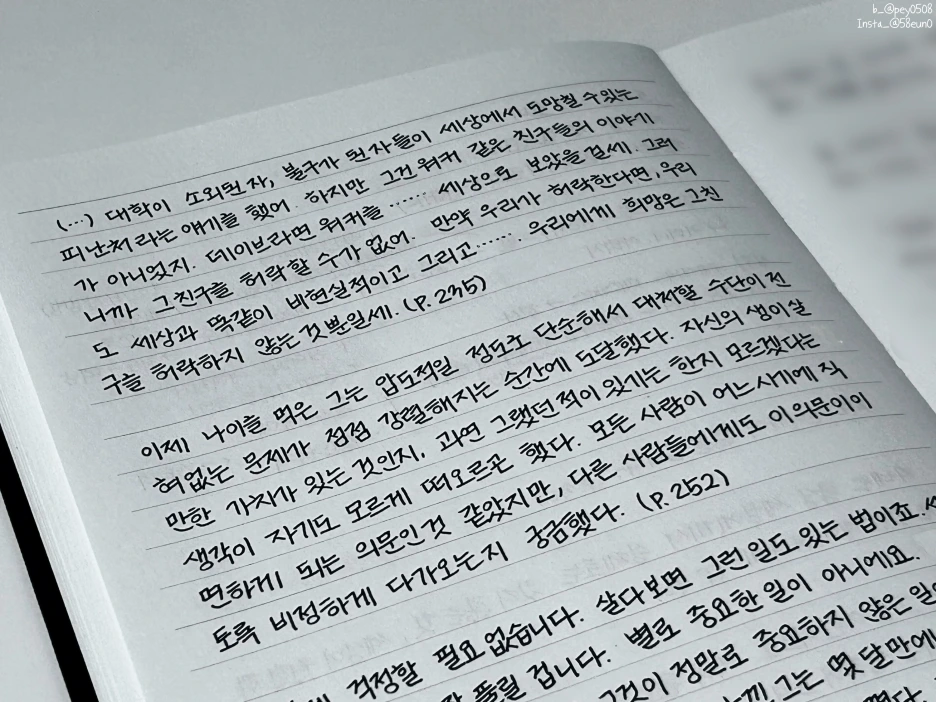 b_@pey0508
Insta_@58eun0
(...) 대학이 소외된 자, 불구가 된 자들이 세상에서 도망칠 수 있는
피난처라는 얘기를 했어. 하지만 그건 워커 같은 친구들의 이야기
가 아니었지. 데이브라면 워커를 ...... 세상으로 보았을 걸세. 그러
니까 그 친구를 허락할 수가 없어. 만약 우리가 허락한다면, 우리
도 세상과 똑같이 비현실적이고 그리고....... 우리에게 희망은 그 친
구를 허락하지 않는 것 뿐일세. (p.235)
이제 나이를 먹은 그는 압도적일 정도로 단순해서 대처할 수단이 전
혀 없는 문제가 점점 강렬해지는 순간에 도달했다. 자신의 생이 살
만한 가치가 있는 것인지, 과연 그랬던 적이 있기는 한지 모르겠다는
생각이 자기도 모르게 떠오르곤 했다. 모든 사람이 어느 시기에 직
면하게 되는 의문인 것 같았지만, 다른 사람들에게도 이 의문이 이
토록 비정하게 다가오는지 궁금했다. (p.252)
걱정할 필요 없습니다. 살다보면 그런 일도 있는 법이죠.
풀릴 겁니다. 별로 중요한 일이 아니에요.
그것이 정말로 중요하지 않은
그는 몇 달 만에